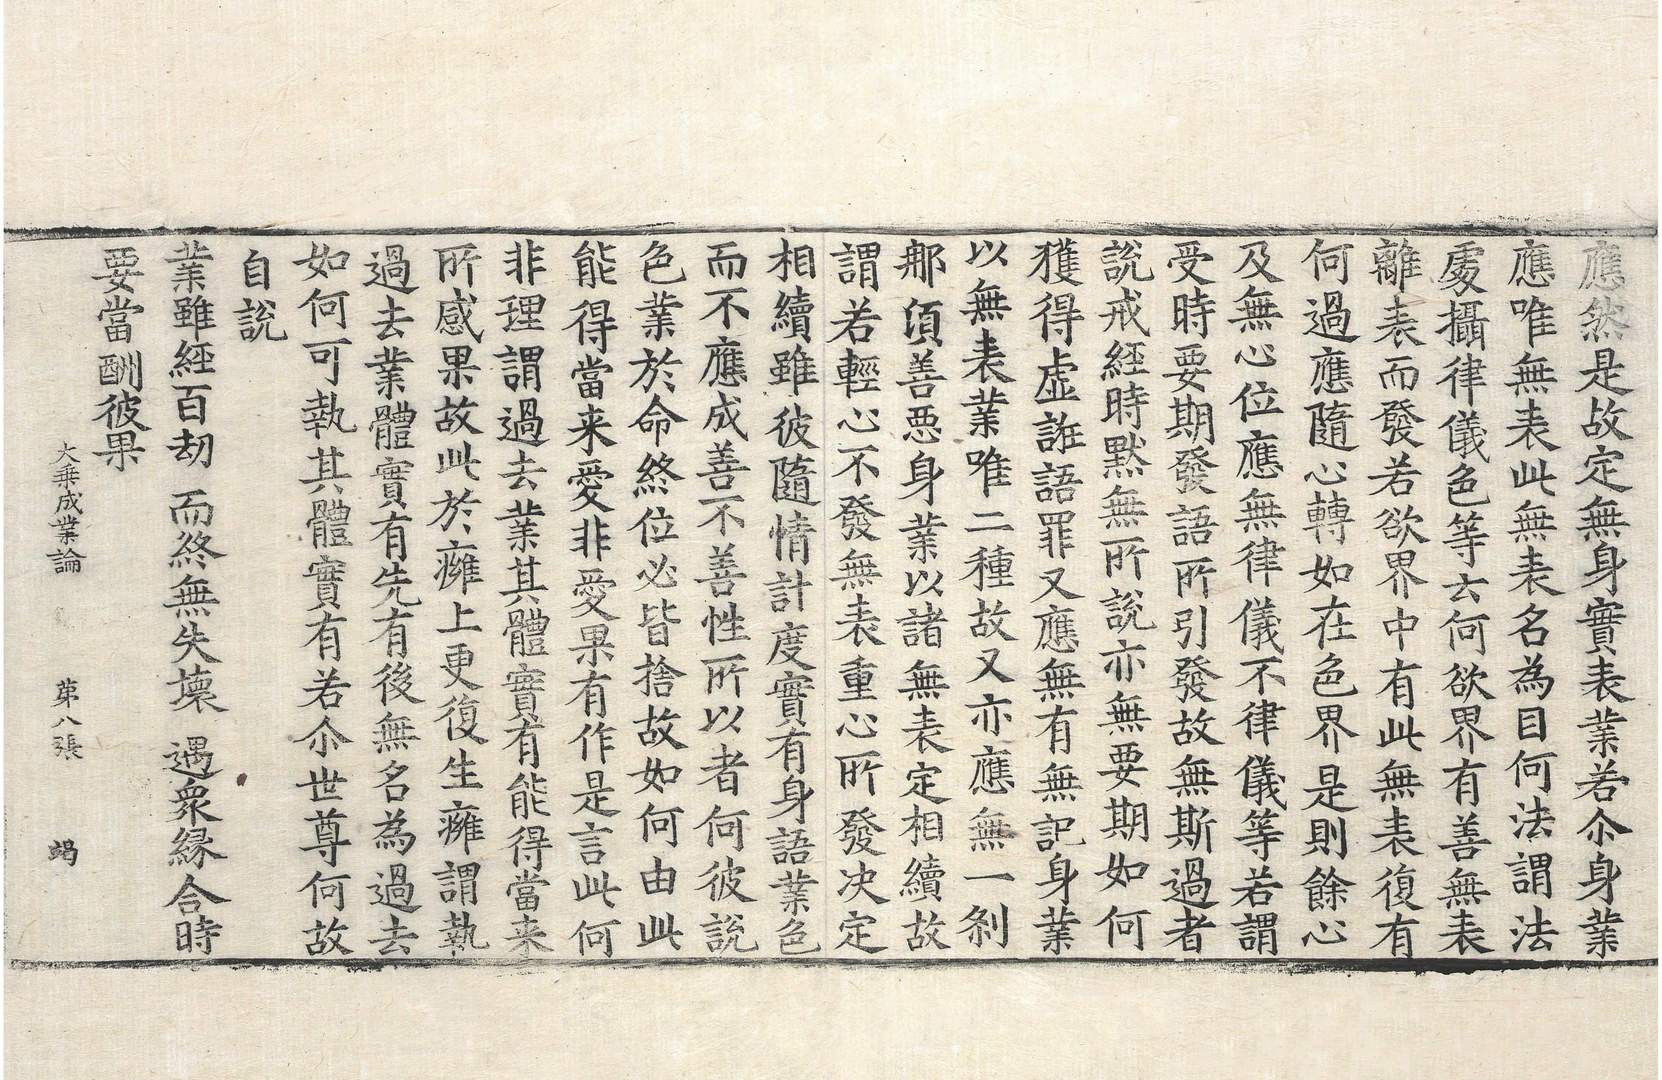 應然是故定無身實表業若尒身業
應唯無表此無表名為目何法謂法
處攝律儀色等云何欲界有善無表
離表而發若欲界中有此無表復有
何過應隨心轉如在色界是則餘心
及無心位應無律儀不律儀等若謂
受時要期發語所引發故無斯過者
說戒經時默無所說亦無要期如何
獲得虛誑語罪又應無有無記身業
以無表業唯二種故又亦應無一剎
那頃善惡身業以諸無表定相續故
謂若輕心不發無表重心所發决定
相續雖彼隨情計度實有身語業色
而不應成善不善性所以者何彼說
色業於命終位必皆捨故如何由此
能得當来愛非愛果有作是言此何
非理謂過去業其體實有能得當来
所感果故此於癰上更復生癰謂執
過去業體實有先有後無名為過去
如何可執其體實有若尒世尊何故
自說
業雖經百劫 而終無失壞 遇衆緣合時
要當酬彼果
大乗成業論 苐八張 竭